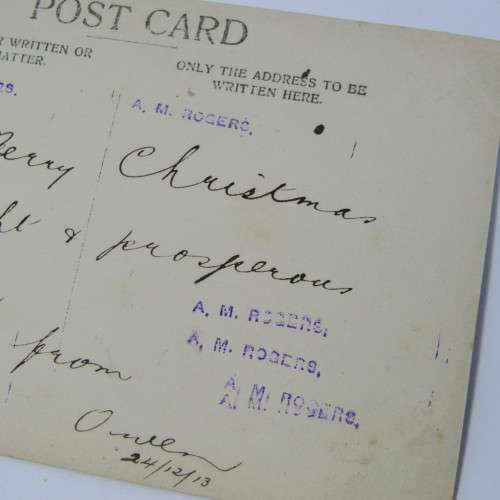 POST CARD
WRITTEN OR
ATTER.
ONLY THE ADDRESS TO BE
WRITTEN HERE.
A. M. ROGERS.
erry Christmas
& prosperous
A. M. ROGERS.
A. M. ROGERS.
A. M. ROGERS.
A. M. ROGERS.
from
Owen
24/12/13